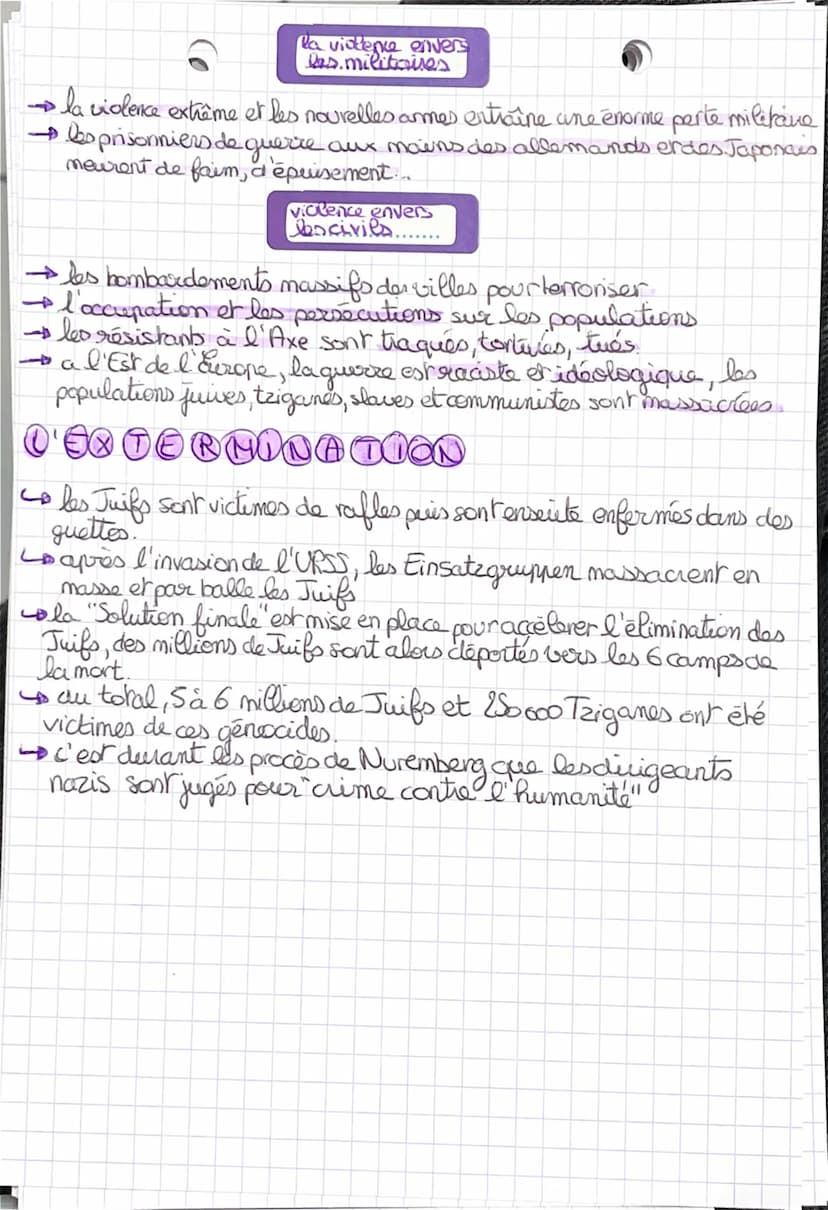 la violence envers
les militaires
→ la violence extrême et les nouvelles armes entraîne une énorme perte militaire
→ les prisonniers de guerre aux mains des allemands et des Japonais
meurent de faim, d'épuisement...
violence envers
les civils.......
→ les bombardements massifs des villes pour terroriser
→ l'occupation et les persécutions sur les populations
→ les résistants à l'Axe sont traqués, torturés, tués.
→ a l'Est de l'Europe, la guerre est raciste et idéologique, les
populations juives, tziganes, slaves et communistes sont massacrées
L'EXTERMINATION
↳ les Juifs sont victimes de rafles puis sont ensuite enfermés dans des
guettos.
↳ après l'invasion de l'URSS, les Einsatzgruppen massacrent en
masse et par balle les Juifs
↳ la "Solution finale" est mise en place pour accélérer l'élimination des
Juifs, des millions de Juifs sont alors déportés vers les 6 camps de
la mort.
↳ au total, 5 à 6 millions de Juifs et 250 000 Tziganes ont été
victimes de ces génocides.
↳ c'est durant les procès de Nuremberg que les dirigeants
nazis sont jugés pour "crime contre l'humanité"